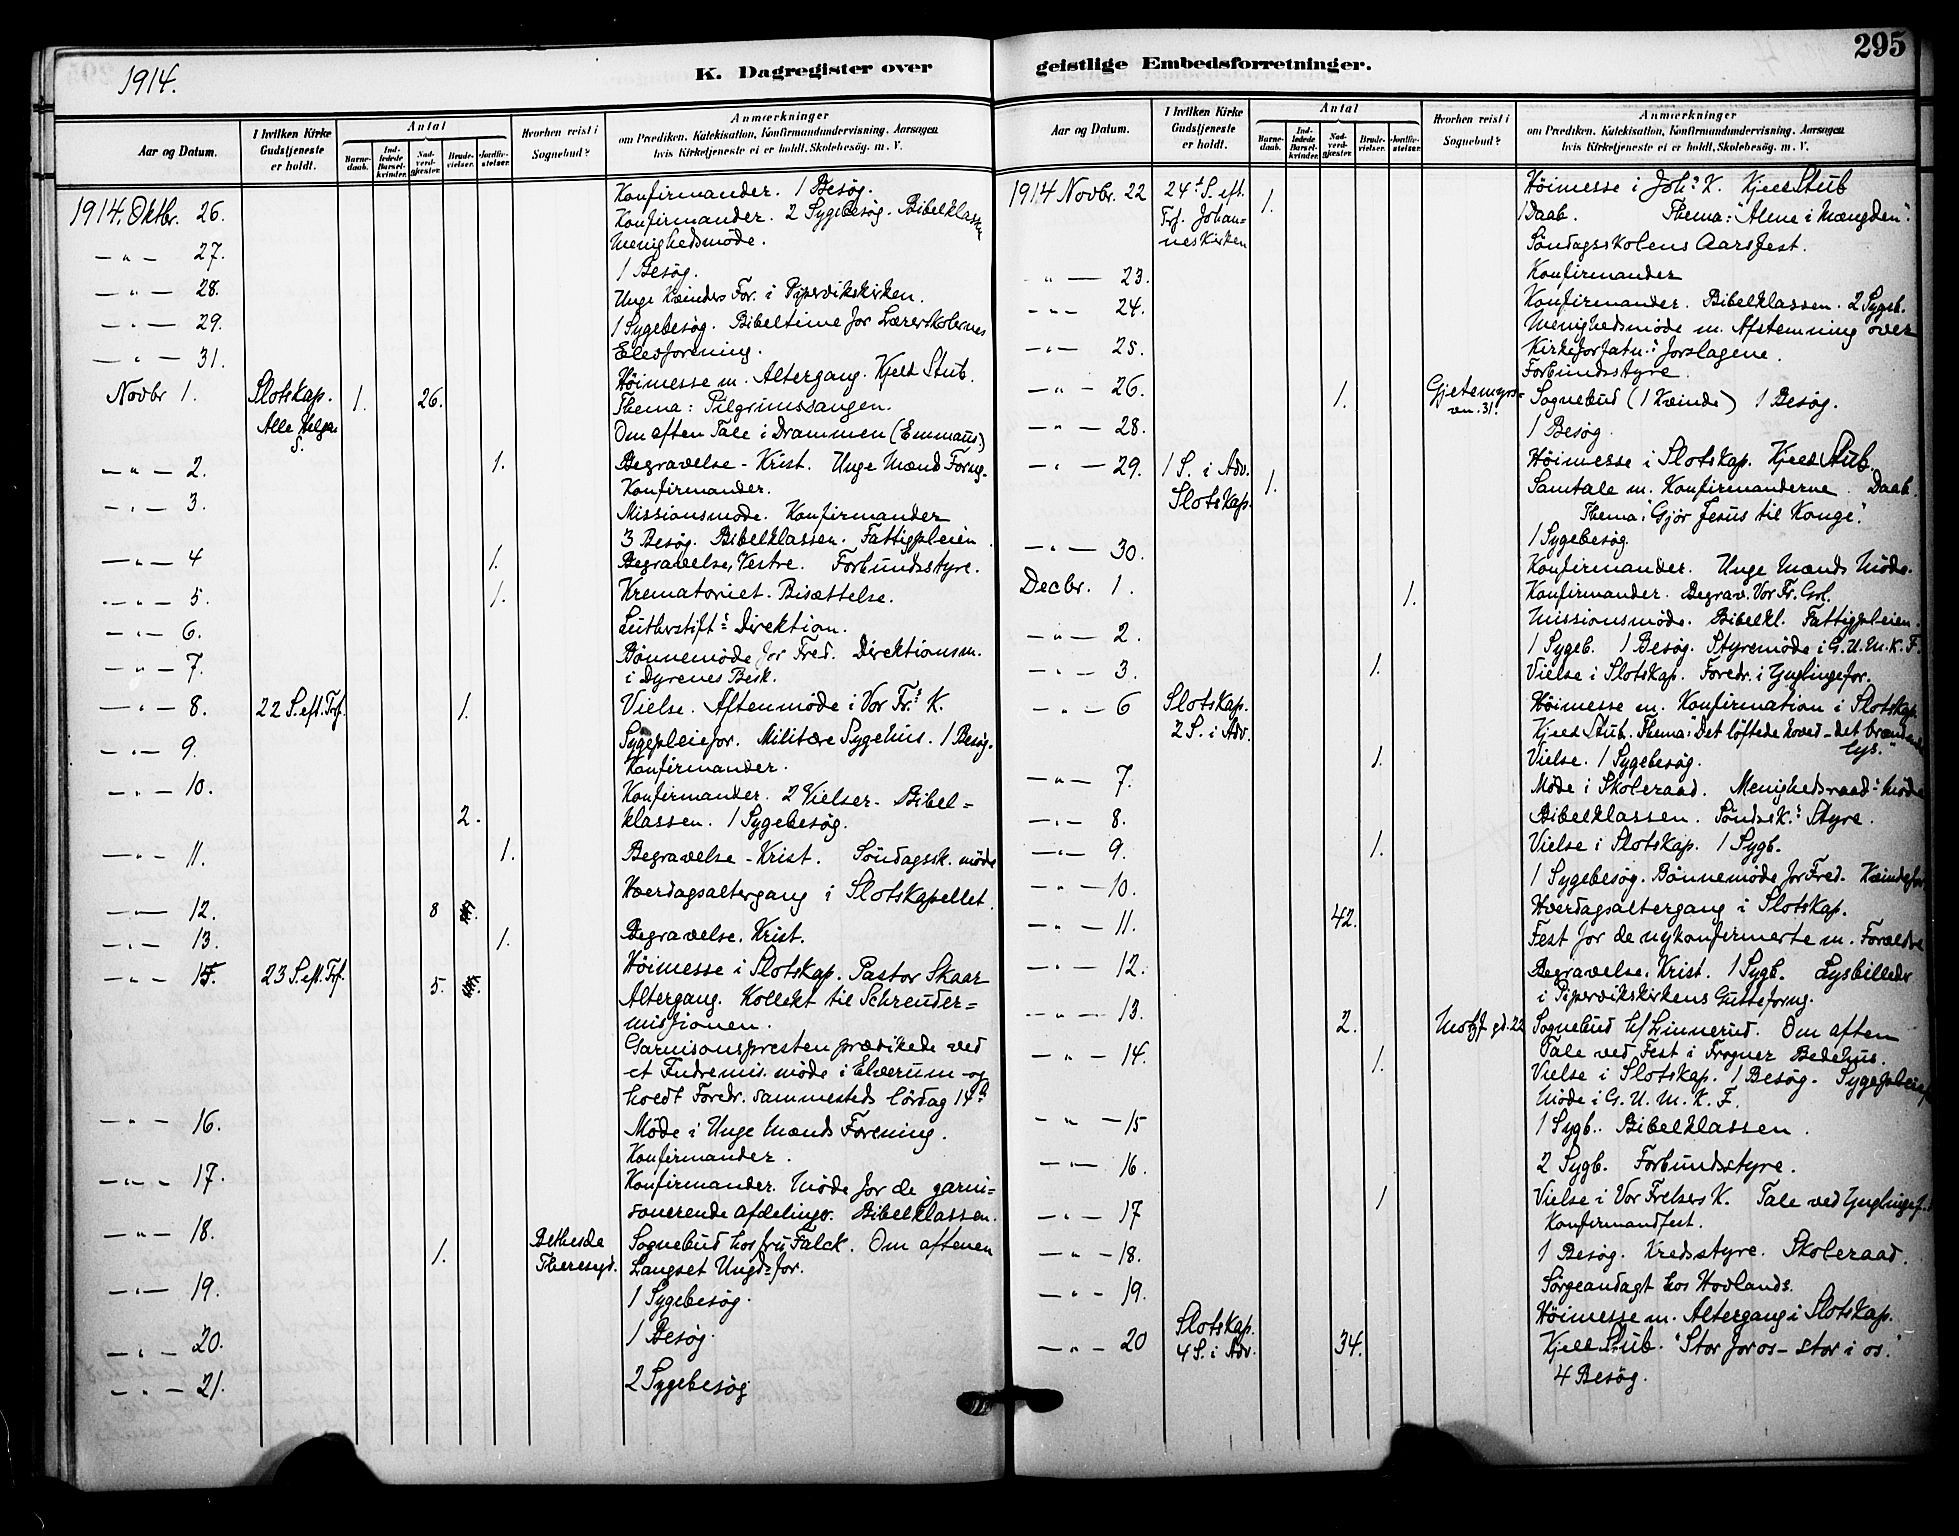 295
1914.
K. Dagregister over geistlige Embedsforretninger.
Aar og Datum.
I hvilken Kirke Gudstjeneste er holdt.
Antal
Barnedaab.
Indledede Barselkvinder.
Nadverdgjæster.
Brudevielser.
Jordfæstelser.
Hvorhen reist i Sognebud?
Anmærkninger
om Prædiken, Katekisation, Konfirmandundervisning, Aarsagen
hvis Kirketjeneste ei er holdt, Skolebesøg. m. V.
Konfirmander. 1 Besøg.
1914. Oktbr. 26. Konfirmander. 2 Sygebesøg. Bibelklassen
Menighedsmøde.
— „ — 27.
1 Besøg.
— „ — 28. Unge Kvinders For. i Pipervikskirken.
— „ — 29. 1 Sygebesøg. Bibeltime for Lærerskolernes
Elevforening.
— „ — 31.
Høimesse m. Altergang. Kjeld Stub.
Novbr 1. Slotskap. 1. 26. Thema: Pilgrimssangen.
Alle Helgen S. Om aften Tale i Drammen (Emmaus.)
— „ — 2. 1. Begravelse - Krist. Unge Mænds Foreng.
Konfirmander.
— „ — 3. Missionsmøde. Konfirmander
3 Besøg. Bibelklassen. Fattigpleien
— „ — 4 1. Begravelse, Vestre. Forbundsstyre.
— „ — 5. 1. Krematoriet. Bisættelse.
— „ — 6. Lutherstift: Direktion.
— „ — 7. Bønnemøde for Fred. Direktionsm.
i Dyrenes Besk.
— „ — 8. 22 S. eft. Trf. 1. Vielse. Aftenmøde i Vor Fr: K.
— „ — 9. Sygepleiefor. Militære Sygehus. 1 Besøg.
Konfirmander.
— „ — 10. Konfirmander. 2 Vielser. Bibel=
2. klassen. 1 Sygebesøg.
— „ — 11. 1. Begravelse - Krist. Søndagssk. møde
Hverdagsaltergang i Slotskapellet.
— „ — 12. 8
— „ — 13. 1. Begravelse. Krist.
— „ — 15. 23 S. eft. Trf. 5. Høimesse i Slotskap. Pastor Skaar
Altergang. Kollekt til Schreuder-
missionen.
Garnisonspresten prædikede ved
et Indremis. møde i Elverum og
holdt Foredr. sammesteds lørdag 14de
— „ — 16. Møde i Unge Mænds Forening.
Konfirmander.
— „ — 17. Konfirmander. Møde for de garni=
sonerende afdelingr. Bibelklassen.
— „ — 18. 1. Bethesda Theresgd. Sognebud hos fru Falck. Om aftenen
Langset Ungdsfor.
— „ — 19. 1 Sygebesøg.
— „ — 20. 1 Besøg.
— „ — 21. 2 Sygebesøg
Aar og Datum.
I hvilken Kirke Gudstjeneste er holdt.
Antal
Barnedaab.
Indledede Barselkvinder.
Nadverdgjæster.
Brudevielser.
Jordfæstelser.
Hvorhen reist i Sognebud?
Anmærkninger
om Prædiken, Katekisation, Konfirmandundervisning, Aarsagen
hvis Kirketjeneste ei er holdt, Skolebesøg. m. V.
1914 Novbr. 22 24de S. eft. 1. Høimesse i Joh: K. Kjeld Stub
Trf. Johan= 1 Daab. Thema: "Alene i Mængden".
neskirken Søndagsskolens Aarsfest.
— „ — 23. Konfirmander
— „ — 24. Konfirmander. Bibelklassen. 2 Sygeb.
Menighedsmøde m. Afstemning over
— „ — 25. Kirkeforfatn:s forslagene.
Forbundsstyre.
— „ — 26. 1. Gjetemyrs= vn. 31. Sognebud (1 Kvinde) 1 Besøg.
— „ — 28. 1 Besøg.
— „ — 29. 1 S. i Adv. Slotskap. 1. Høimesse i Slotskap. Kjeld Stub.
Samtale m. Konfirmanderne. Daab.
Thema: "Gjør Jesus til Konge".
1 Sygebesøg.
— „ — 30. Konfirmander. Unge Mænds Møde.
Decbr. 1. 1. Konfirmander. Begrav. Vor Fr. Grl.
Missionsmøde. Bibelkl. Fattigpleien.
— „ — 2. 1 Sygeb. 1 Besøg. Styremøde i G.U.M.K.F.
— „ — 3. 1. Vielse i Slotskap. Foredr. i Ynglingefor.
— „ — 6 Slotskap. 2 S. i Adv. Høimesse m. Konfirmation i Slotskap.
Kjeld Stub. Thema: "Det løftede hoved - det brændende
lys."
— „ — 7. 1. Vielse. 1 Sygebesøg.
Møde i Skoleraad. Menighedsraad:s møde
— „ — 8. Bibelklassen. Søndsk:s Styre.
— „ — 9. 1. Vielse i Slotskap. 1 Sygb.
— „ — 10. 1 Sygebesøg. Bønnemøde for Fred. Kvindefor.
— „ — 11. 42. Hverdagsaltergang i Slotskap.
Fest for de nykonfirmerte m. Forældre
— „ — 12. Begravelse. Krist. 1 Sygb. Lysbilleder
i Pipervikskirkens Gutteforng.
— „ — 13. 2. Motzf gd. 22 Sognebud h/ Linnerud. Om aften
Tale ved Fest i Frogner Bedehus.
— „ — 14. 1. Vielse i Slotskap. 1 Besøg. Sygepleief
Møde i G. U. M. K. F.
— „ — 15 1 Sygb.. Bibelklassen.
— „ — 16. 2 Sygb. Forbundsstyre.
— „ — 17 1 Vielse i Vor Frelsers K. Tale ved Ynglingef.
Konfirmandfest.
— „ — 18. 1 Besøg. Kredsstyre. Skoleraad.
— „ — 19. Sørgeandagt hos Hovlands.
— „ — 20 Slotskap. 4 S. i Adv. 34. Høimesse m. Altergang i Slotskap.
Kjeld Stub. "Stor for os - stor i os."
4 Besøg.